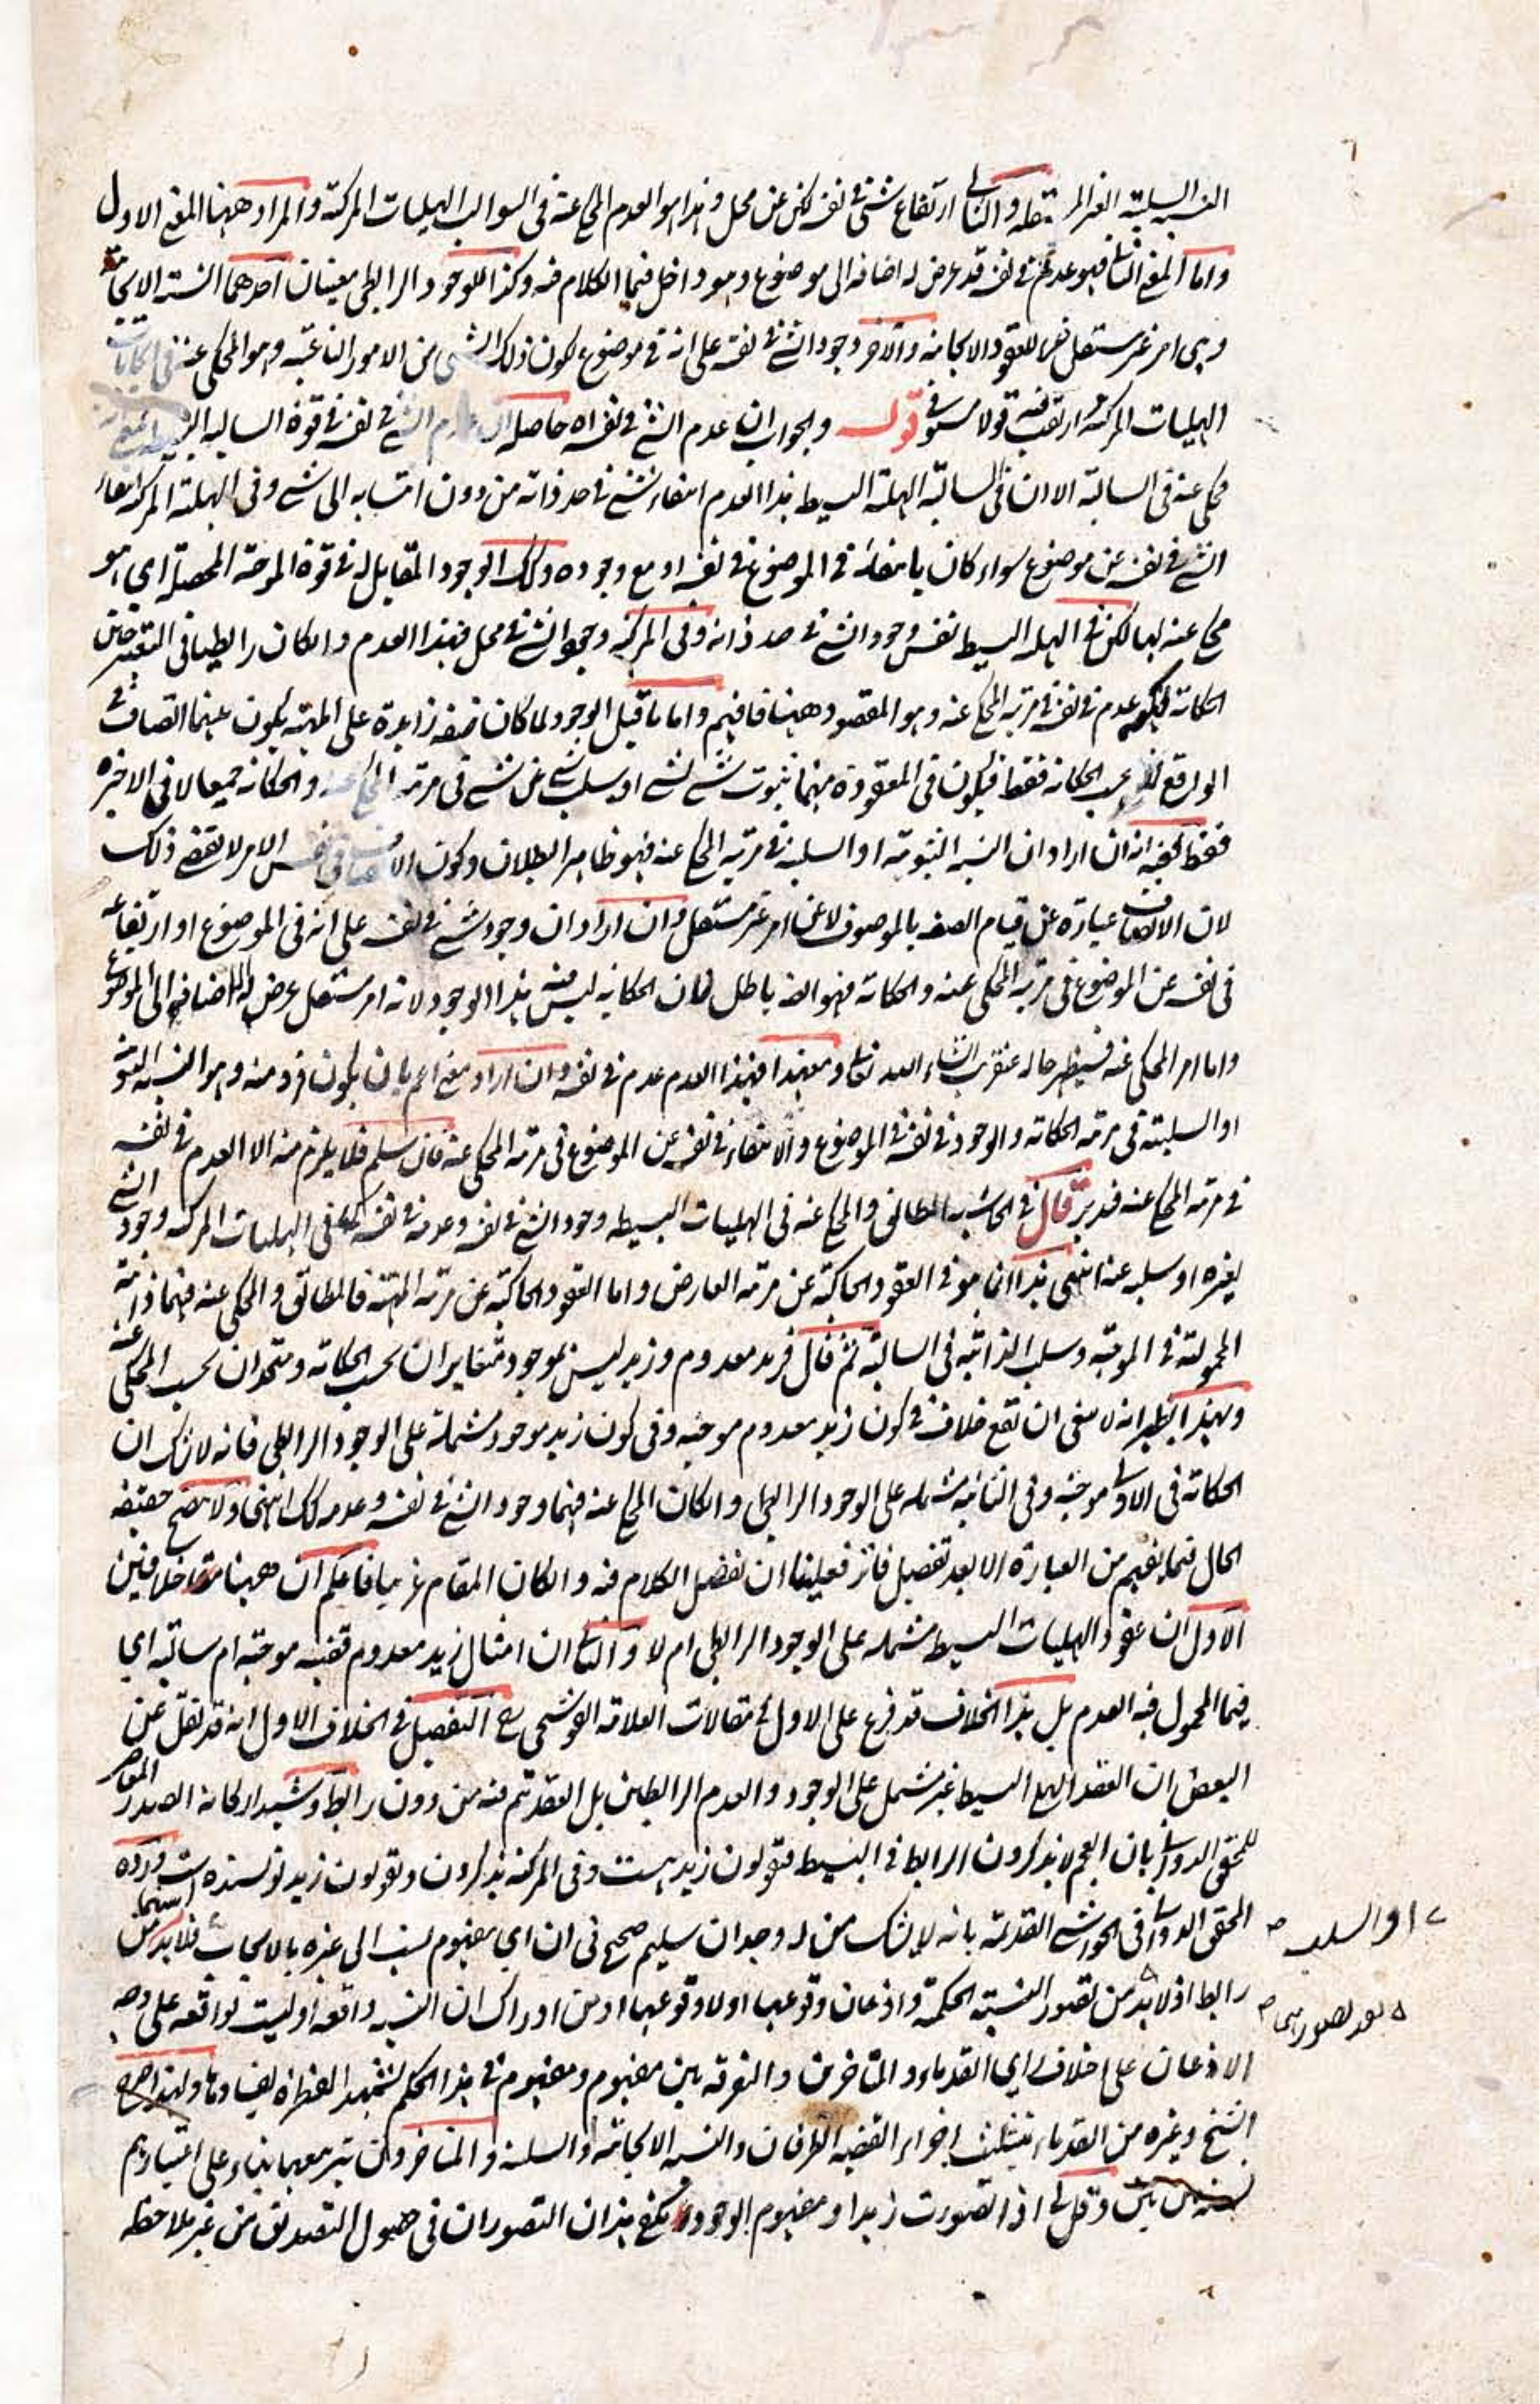 النسبة السلبية الغير المستقلة والثاني ارتفاع شئ في نفسه لكن عن محل وهذا هو العدم المحكي عنه في السوالب الهليات المركبة والمراد ههنا المعنى الاول
واما المعنى الثاني فهو عدم في نفسه قد عرض له اضافة الى موضوع وهو داخل فيما الكلام فيه وكذا للوجود الرابطي معنيان احدهما النسبة الايجابية
وهي امر غير مستقل في العقود الايجابية والاخر وجود الشئ في نفسه على انه في موضوع لكون ذلك الشئ من الامور الناعتية وهو المحكي عنه في
الهليات المركبة قولا مستوفى قوله والجواب ان عدم الشئ في نفسه اه حاصله ان عدم الشئ في نفسه في قوة السالبة
محكي عنه في السالبة الا ان في السالبة الهلية البسيطة هذا العدم انتفاء شئ في حد ذاته من دون انتسابه الى شئ وفي الهلية المركبة انتفاء
الشئ في نفسه عن موضوع سواء كان بانتفائه في الموضوع في نفسه او مع وجوده وكذلك الوجود المقابل له في قوة الموجبة المحصلة اي هو
محكي عنه لها لكن في الهلية البسيطة نفس وجود الشئ في حد ذاته وفي المركبة وجود الشئ في محل فهذا العدم وان كان رابطيا في التعبير حين
الحكاية لكنه عدم في نفسه في مرتبة المحكي عنه وهو المقصود ههنا فافهم واما ما قيل الوجود لما كان صفة زائدة على المهية يكون عينها اتصاف في
الواقع لا بحسب الحكاية فقط فيكون في المعقودة منهما ثبوت شئ لشئ او سلب شئ عن شئ في مرتبة المحكي عنه والحكاية جميعا لا في الاخيرة
فقط ففيه انه ان اراد ان النسبة الثبوتية او السلبية في مرتبة المحكي عنه فهو ظاهر البطلان وكون الاتصاف في نفس الامر لا يقتضي ذلك
لان الاتصاف عبارة عن قيام الصفة بالموصوف لا عن امر غير مستقل وان اراد ان وجود شئ في نفسه على انه في الموضوع او ارتفاعه
في نفسه عن الموضوع في مرتبة المحكي عنه والحكاية فهو ايضا باطل لان الحكاية ليس فيه هذا الوجود لانه امر مستقل عرض له الاضافة الى الموضوع
واما امر المحكي عنه فسيظهر حاله عنقريب انشاء الله تعالى ومعهذا فهذا العدم عدم في نفسه وان اراد معنى اعم بان يكون فرد منه وهو النسبة الثبوتية
او السلبية في مرتبة الحكاية والوجود في نفسه في الموضوع والانتفاء في نفسه عن الموضوع في مرتبة المحكي عنه فان سلم فلا يلزم منه الا العدم في نفسه
في مرتبة المحكي عنه فتدبر قال في الحاشية المطابق والمحكي عنه في الهليات البسيطة وجود الشئ في نفسه وعدمه في نفسه كما في الهليات المركبة وجود الشئ
لغيره او سلبه عنه انتهى هذا انما هو في العقود الحاكية عن مرتبة العارض واما العقود الحاكية عن مرتبة المهية فالمطابق والمحكي عنه فيهما ذاتية
المحمول في الموجبة وسلب الذاتية في السالبة ثم قال فزيد معدوم وزيد ليس بموجود متغايران بحسب الحكاية ومتحدان بحسب المحكي عنه
وبهذا يظهر انه لا ينبغي ان يقع خلاف في كون زيد معدوم موجبة وفي كون زيد موجود مشتملة على الوجود الرابطي فانه لا شك ان
الحكاية في الاولى موجبة وفي الثانية مشتملة على الوجود الرابطي وان كان المحكي عنه فيهما وجود الشئ في نفسه وعدمه كذلك انتهى ولا يتضح حقيقة
الحال فيما يفهم من العبارة الا بعد تفصيل فعلينا ان نفصل الكلام فيه وان كان المقام غريبا فاعلم ان ههنا خلافين
الاول ان عقود الهليات البسيطة مشتملة على الوجود الرابطي ام لا والثاني ان امثال زيد معدوم قضية موجبة ام سالبة اي
فيما المحمول فيه العدم بل هذا الخلاف قد فرع على الاول في مقالات العلامة القوشجي التفصيل في الخلاف الاول انه قد نقل عن
البعض ان العقد الهلي البسيط غير مشتمل على الوجود والعدم الرابطين بل العقد تم فيه من دون رابط وشيد اركانه الصدر المعاصر
للمحقق الدواني بان العجم لا يذكرون الرابط في البسيطة فيقولون زيد هست وفي المركبة يذكرون ويقولون زيد نويسنده است ورده
المحقق الدواني في الحواشي القديمة بانه لا يشك من له وجدان سليم صحيح في ان اي مفهوم نسب الى غيره بالايجاب فلا بد من
او السلب
رابط اذ لا بد من تصور النسبة الحكمية واذعان وقوعها او لا وقوعها او من ادراك ان النسبة واقعة او ليست بواقعة على وجه
بعد تصورهما
الاذعان على اختلاف راي القدماء والمتاخرين والتفرقة بين مفهوم ومفهوم في هذا الحكم تشهد الفطرة بفسادها ولهذا صرح
الشيخ وغيره من القدماء بتثليث اجزاء القضية الطرفان والنسبة الايجابية او السلبية والمتاخرون بتربيعها بناء على اعتبارهم
وقال اذا تصورت زيدا ومفهوم الوجود يكفي هذان التصوران في حصول التصديق من غير ملاحظة